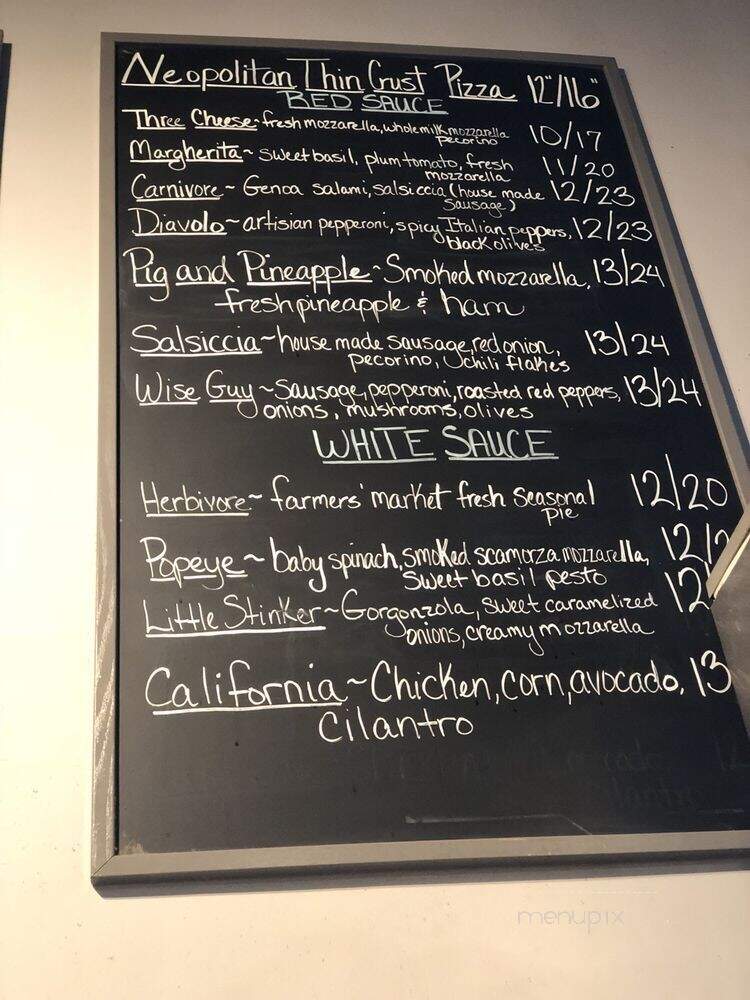 Neopolitan Thin Crust Pizza 12"/16"
RED SAUCE
Three Cheese~fresh mozzarella, whole milk mozzarella 10/17
pecorino
Margherita~ sweet basil, plum tomato, fresh 11/20
mozzarella
Carnivore~ Genoa salami, salsiccia (house made 12/23
sausage)
Diavolo~artisian pepperoni, spicy Italian peppers, 12/23
black olives
Pig and Pineapple~Smoked mozzarella, 13/24
fresh pineapple & ham
Salsiccia~house made sausage, red onion, 13/24
pecorino, chili flakes
Wise Guy~Sausage, pepperoni, roasted red peppers, 13/24
onions, mushrooms, olives
WHITE SAUCE
Herbivore~ farmers' market fresh seasonal 12/20
pie
Popeye~baby spinach, smoked scamorza mozzarella, 12/2
sweet basil pesto
Little Stinker~Gorgonzola, sweet caramelized 12
onions, creamy mozzarella
California~Chicken, corn, avocado, 13
cilantro
menupix